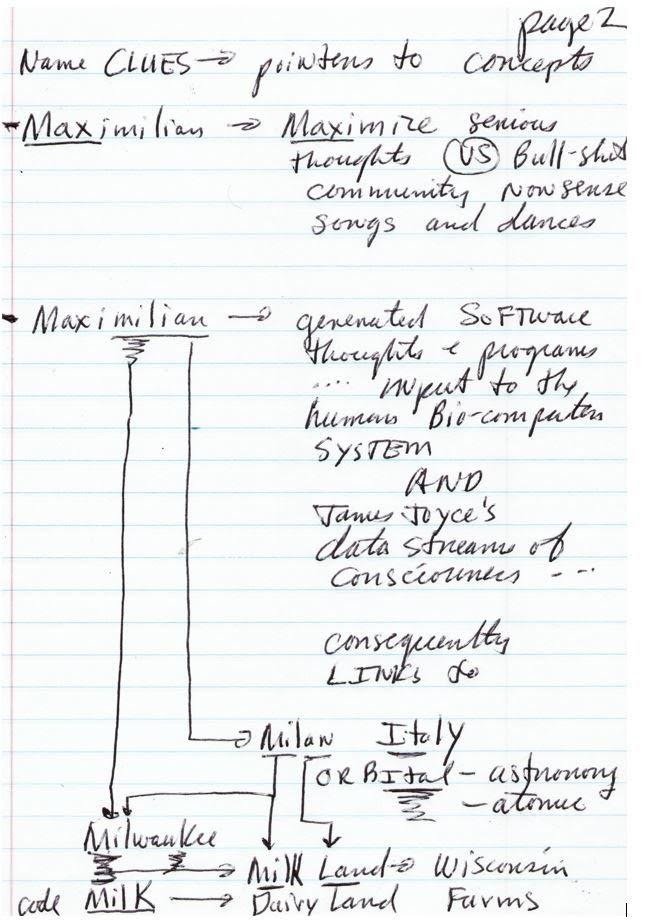 page 2
Name CLUES → pointers to concepts
- Maximilian → Maximize serious
thoughts VS Bull-shit
community nonsense
songs and dances
- Maximilian → generated SOFTware
thoughts & programs
.... input to the
human Bio-computer
SYSTEM
AND
James Joyce's
data streams of
consciousness ...
consequently
LINKS to
Milan Italy
ORBItal - astronomy
- atomic
Milwaukee
Milk Land → Wisconsin
code Milk → Dairy Land Farms